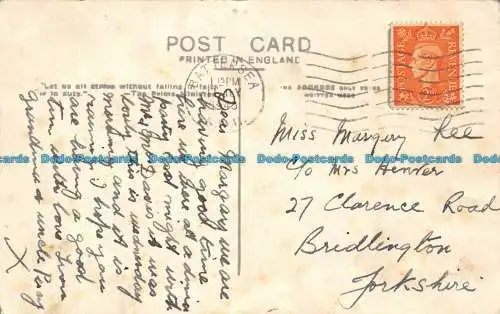 POST CARD
PRINTED IN ENGLAND
BATTERSEA
1.15PM
"Let us all strive without failing in faith
or in duty." — The Prime Minister
THE ADDRESS ONLY TO BE
WRITTEN HERE
POSTAGE
REVENUE
Dear Margary we are
having good time
here at a dinner
party last night with
Mrs Davis it was
lovely this is wednesday
morning and it is
raining I hope you
are having a good
time with love from
Grandma & uncle Percy
X
Miss Margery Kee
C/o Mrs Henver
27 Clarence Road
Bridlington
Yorkshire
Dodo-Postcards Dodo-Postcards Dodo-Postcards Dodo-Postcards Dodo-Postcards